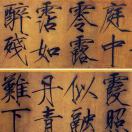 庭中
零露
霑如
醉殘
霞照
似融
丹青
難下